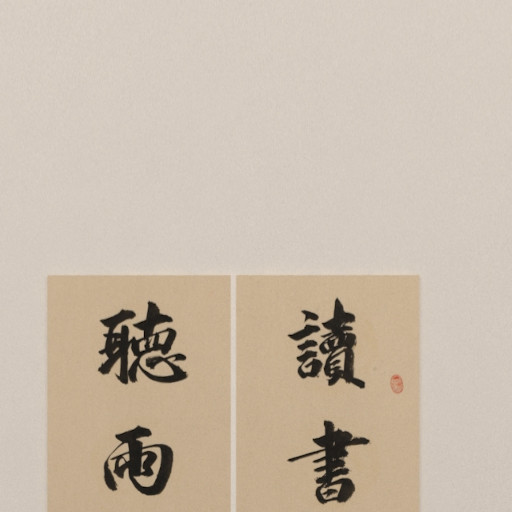 讀書
聽雨